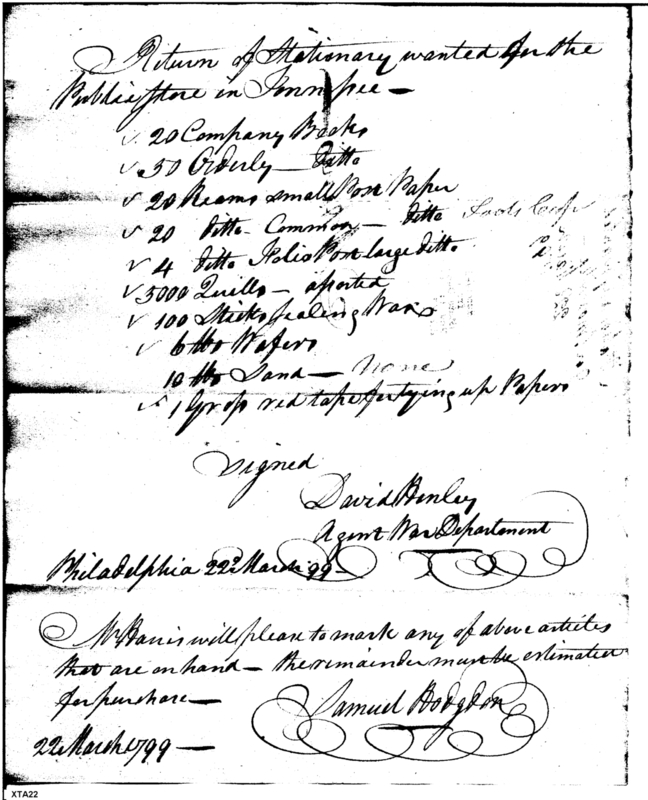 Return of Stationary wanted for the
Public Store in Tennessee —
✓ 20 Company Books
✓ 50 Orderly — ditto
✓ 20 Reams small Post Paper
✓ 20 ditto - Common — ditto Fools Cap
✓ 4 ditto Folio Post large ditto
✓ 5000 Quills — assorted
✓ 100 Sticks sealing Wax
✓ 6 lbs Wafers
10 lbs Sand — None
✓ 1 Gross red tape for tying up Papers
signed
David Henley
Agent War Department
Philadelphia 22d March 99 -
Mr Harris will please to mark any of above articles
that are on hand — the remainder must be estimated
for purchase —
Samuel Hodgdon
22 March 1799 —
XTA22